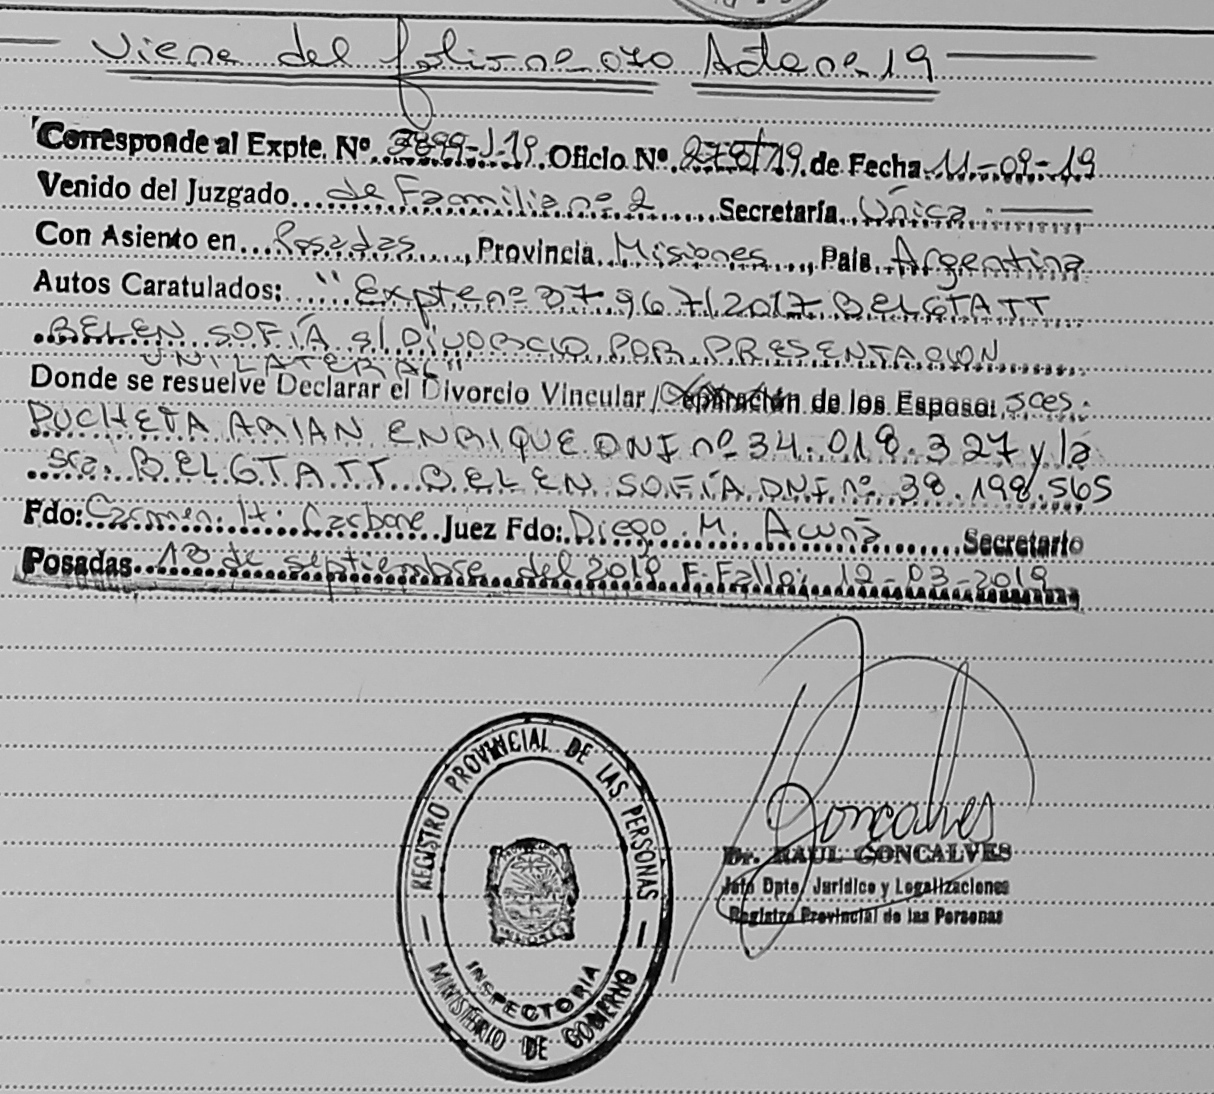 Viene del folio nº 070 Acta nº 19
Corresponde al Expte. Nº 3899-J-19. Oficio Nº 278/19. de Fecha 11-09-19
Venido del Juzgado de Familia nº 2 Secretaría Única
Con Asiento en Posadas, Provincia Misiones, País Argentina
Autos Caratulados: "Expte nº 37967/2017 BELGTATT
BELEN SOFÍA s/ DIVORCIO POR PRESENTACION
UNILATERAL"
Donde se resuelve Declarar el Divorcio Vincular / Separación de los Esposo: sres:
PUCHETA ARIAN ENRIQUE DNI nº 34.018.327 y la
sra. BELGTATT BELEN SOFÍA DNI nº 38.198.565
Fdo: Carmen H. Carbone Juez Fdo: Diego M. Acuña Secretario
Posadas 18 de septiembre del 2019 F. Fallo: 12-03-2019
REGISTRO PROVINCIAL DE LAS PERSONAS
INSPECTORIA
MINISTERIO DE GOBIERNO
Goncalves
Dr. RAUL GONCALVES
Jefe Dpto. Jurídico y Legalizaciones
Registro Provincial de las Personas